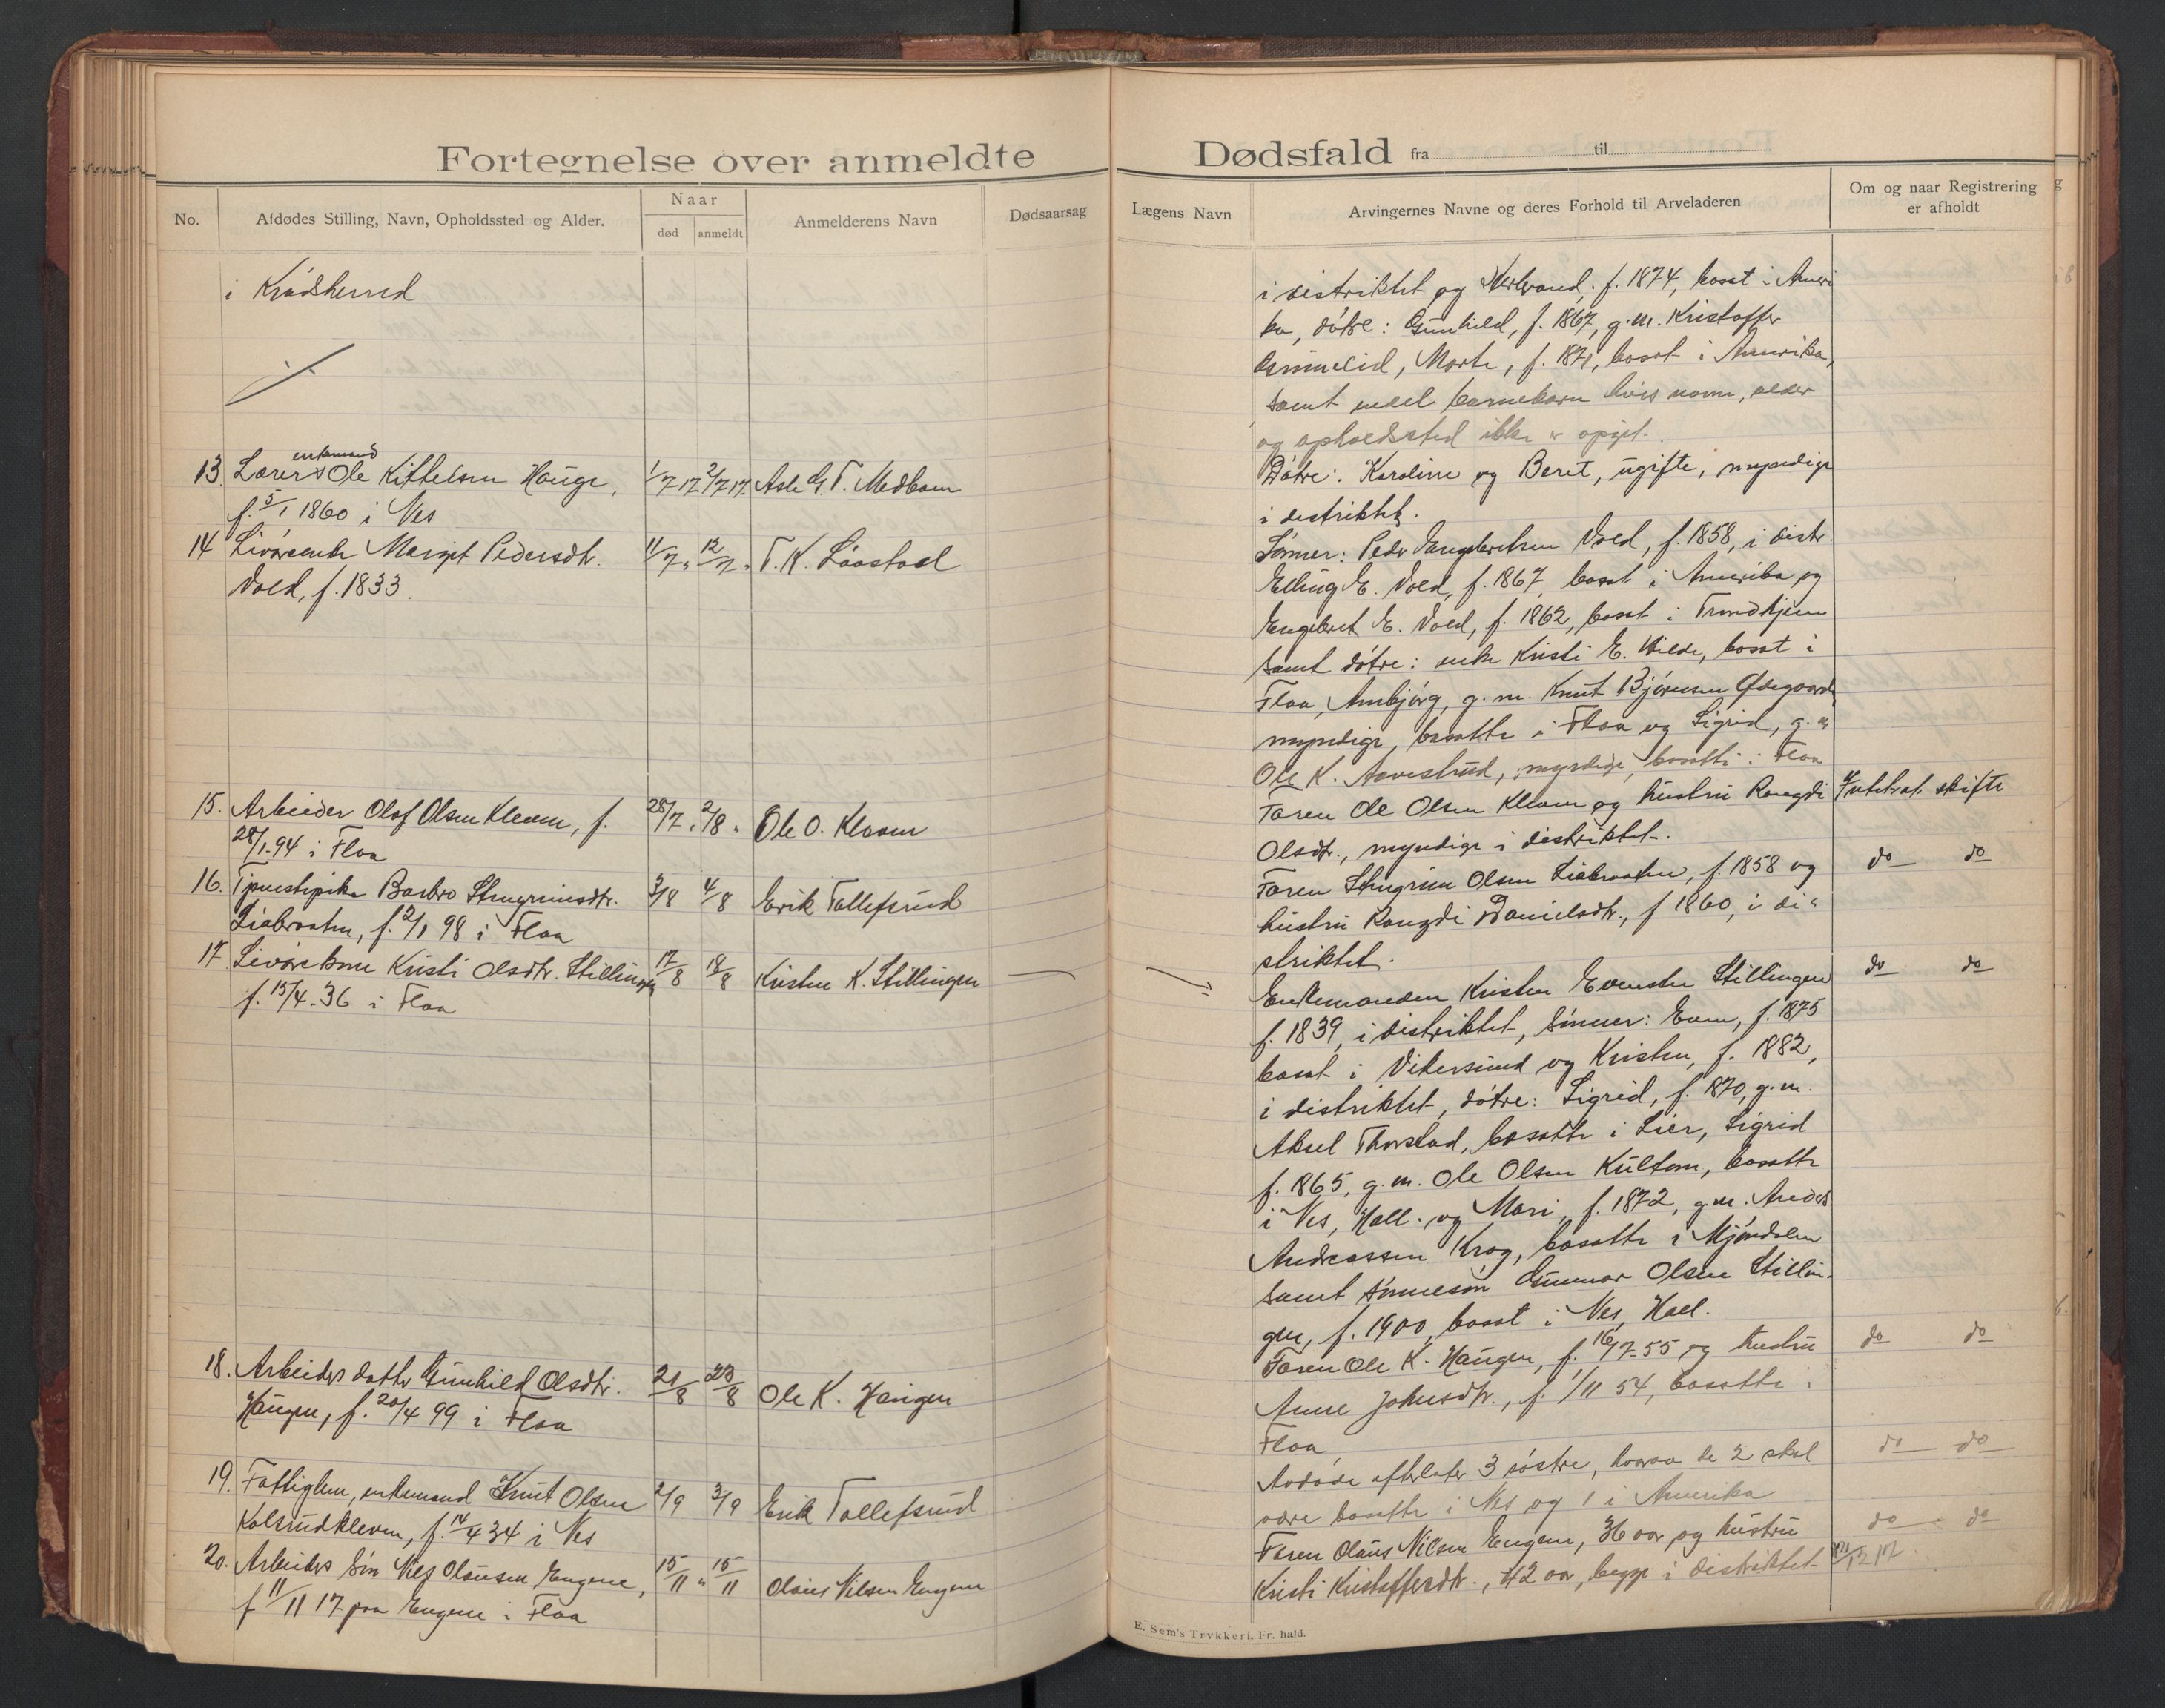 Fortegnelse over anmeldte
No.
Afdødes Stilling, Navn, Opholdssted og Alder.
Naar
død
anmeldt
Anmelderens Navn
Dødsaarsag
i Krødsherred
13. Lærer enkemand Ole Kittelsen Hauge, 1/7 17 2/7 17 Asle G. T. Medbøen
f. 5/1 1860 i Nes
14 Livøreenke Margit Pedersdtr. 11/7 „ 12/7 „ T. K. Løostad
Vold, f. 1833.
15. Arbeider Olof Olsen Kleven, f. 28/7 „ 2/8 „ Ole O. Kleven
28/1-94 i Flaa
16. Tjenestepike Barbro Stengrimsdtr. 3/8 4/8 Erik Tollefsrud
Liabraaten, f. 2/1 98 i Flaa
17 Livørekone Kristi Olsdtr. Stillingen 17/8 18/8 Kristen K. Stillingen
f. 15/4-36 i Flaa
18. Arbeiders datter Gunhild Olsdtr. 21/8 23/8 Ole K. Haugen
Haugen, f. 20/4 99 i Flaa
19. Fattiglem, enkemand Knut Olsen 2/9 3/9 Erik Tollefsrud
Kolsrudkleven, f. 14/4 34 i Nes
20. Arbeiders søn Nils Olausen Engene, 15/11 „ 15/11 Olaus Nilsen Engene
f 11/11 17 paa Engene i Flaa
Dødsfald fra til
Lægens Navn
Arvingernes Navne og deres Forhold til Arveladeren
Om og naar Registrering
er afholdt
i distriktet og Herbrand, f. 1874, bosat i Ameri
ka, døtre: Gunhild, f. 1867, g.m. Kristoffer
Gummelid, Marte, f. 1871, bosat i Amerika,
samt endel barnebarn hvis navn, alder
og opholdssted ikke er opgit.
Døtre: Karoline og Beret, ugifte, myndige
i distriktet.
Sønner: Peder Engebretsen Vold, f. 1858, i distr.
Elling E. Vold, f. 1867, bosat i Amerika og
Engebret E. Vold, f. 1862, bosat i Trondhjem
samt døtre: enke Kristi E. Wilde, bosat i
Flaa, Ambjørg, g. m. Knut Bjørnsen Ødegaard,
myndige, bosatte i Flaa og Sigrid, g. m
Ole K. Aavestrud, myndige, bosatte i Flaa
Faren Ole Olsen Kleven og hustru Rangdi skifte
Olsdtr., myndige i distriktet.
Faren Stengrim Olsen Liabraaten, f. 1858 og do do
hustru Rangdi Danielsdtr., f 1860, i di-
striktet.
Enkemanden Kristen Evensen Stillingen do do
f. 1839, i distriktet, sønner: Even, f. 1875
bosat i Vikersund og Kristen, f. 1882,
i distriktet, døtre: Sigrid, f. 1870, g.m.
Aksel Thorstad, bosatte i Lier, Sigrid
f. 1865, g.m. Ole Olsen Kulton, bosatte
i Nes, Hall. og Mari, f. 1872, g.m. Anders
Andreassen Krog, bosatte i Mjøndalen
samt sønnesøn Gunnar Olsen Stillin-
gen, f. 1900, bosat i Nes, Hall.
Faren Ole K. Haugen, f. 16/7-55 og hustru do do
Anne Johnsdtr., f. 1/11 54, bosatte i
Flaa
Avdøde efterlater 3 søstre, hvorav de 2 skal do do
være bosatte i Nes og 1 i Amerika
Faren Olaus Nilsen Engene, 36 aar og hustru do do
Kristi Kristoffersdtr., 42 aar, begge i distriktet 12 17.
E. Sem's Trykkeri, Fr. hald.